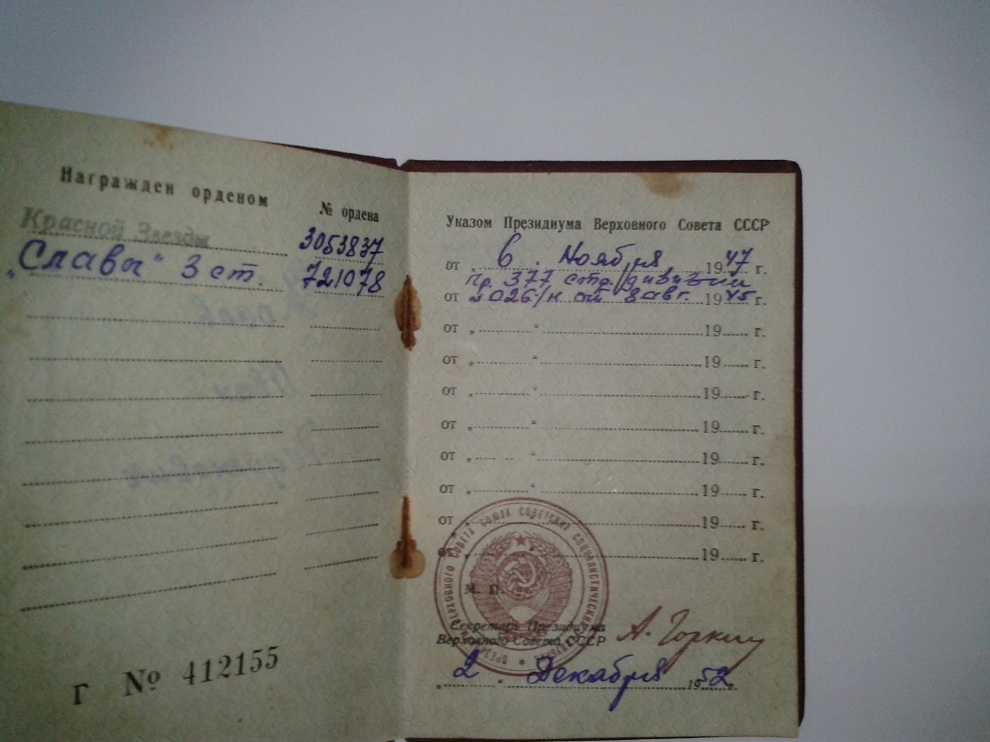 Награжден орденом
№ ордена
Красной Звезды
3053837
„Славы“ 3 ст.
721078
Г № 412155
Указом Президиума Верховного Совета СССР
от „ 6 “ Ноября 1947 г.
пр. 377 стр. дивизии
от 2026/н от 8 авг. 1945 г.
от „ “ 19 г.
от „ “ 19 г.
от „ “ 19 г.
от „ “ 19 г.
от „ “ 19 г.
от „ “ 19 г.
от „ “ 19 г.
от „ “ 19 г.
М. П.
Секретарь Президиума
Верховного Совета СССР
А. Горкин
„ 2 “ Декабря 1952 г.